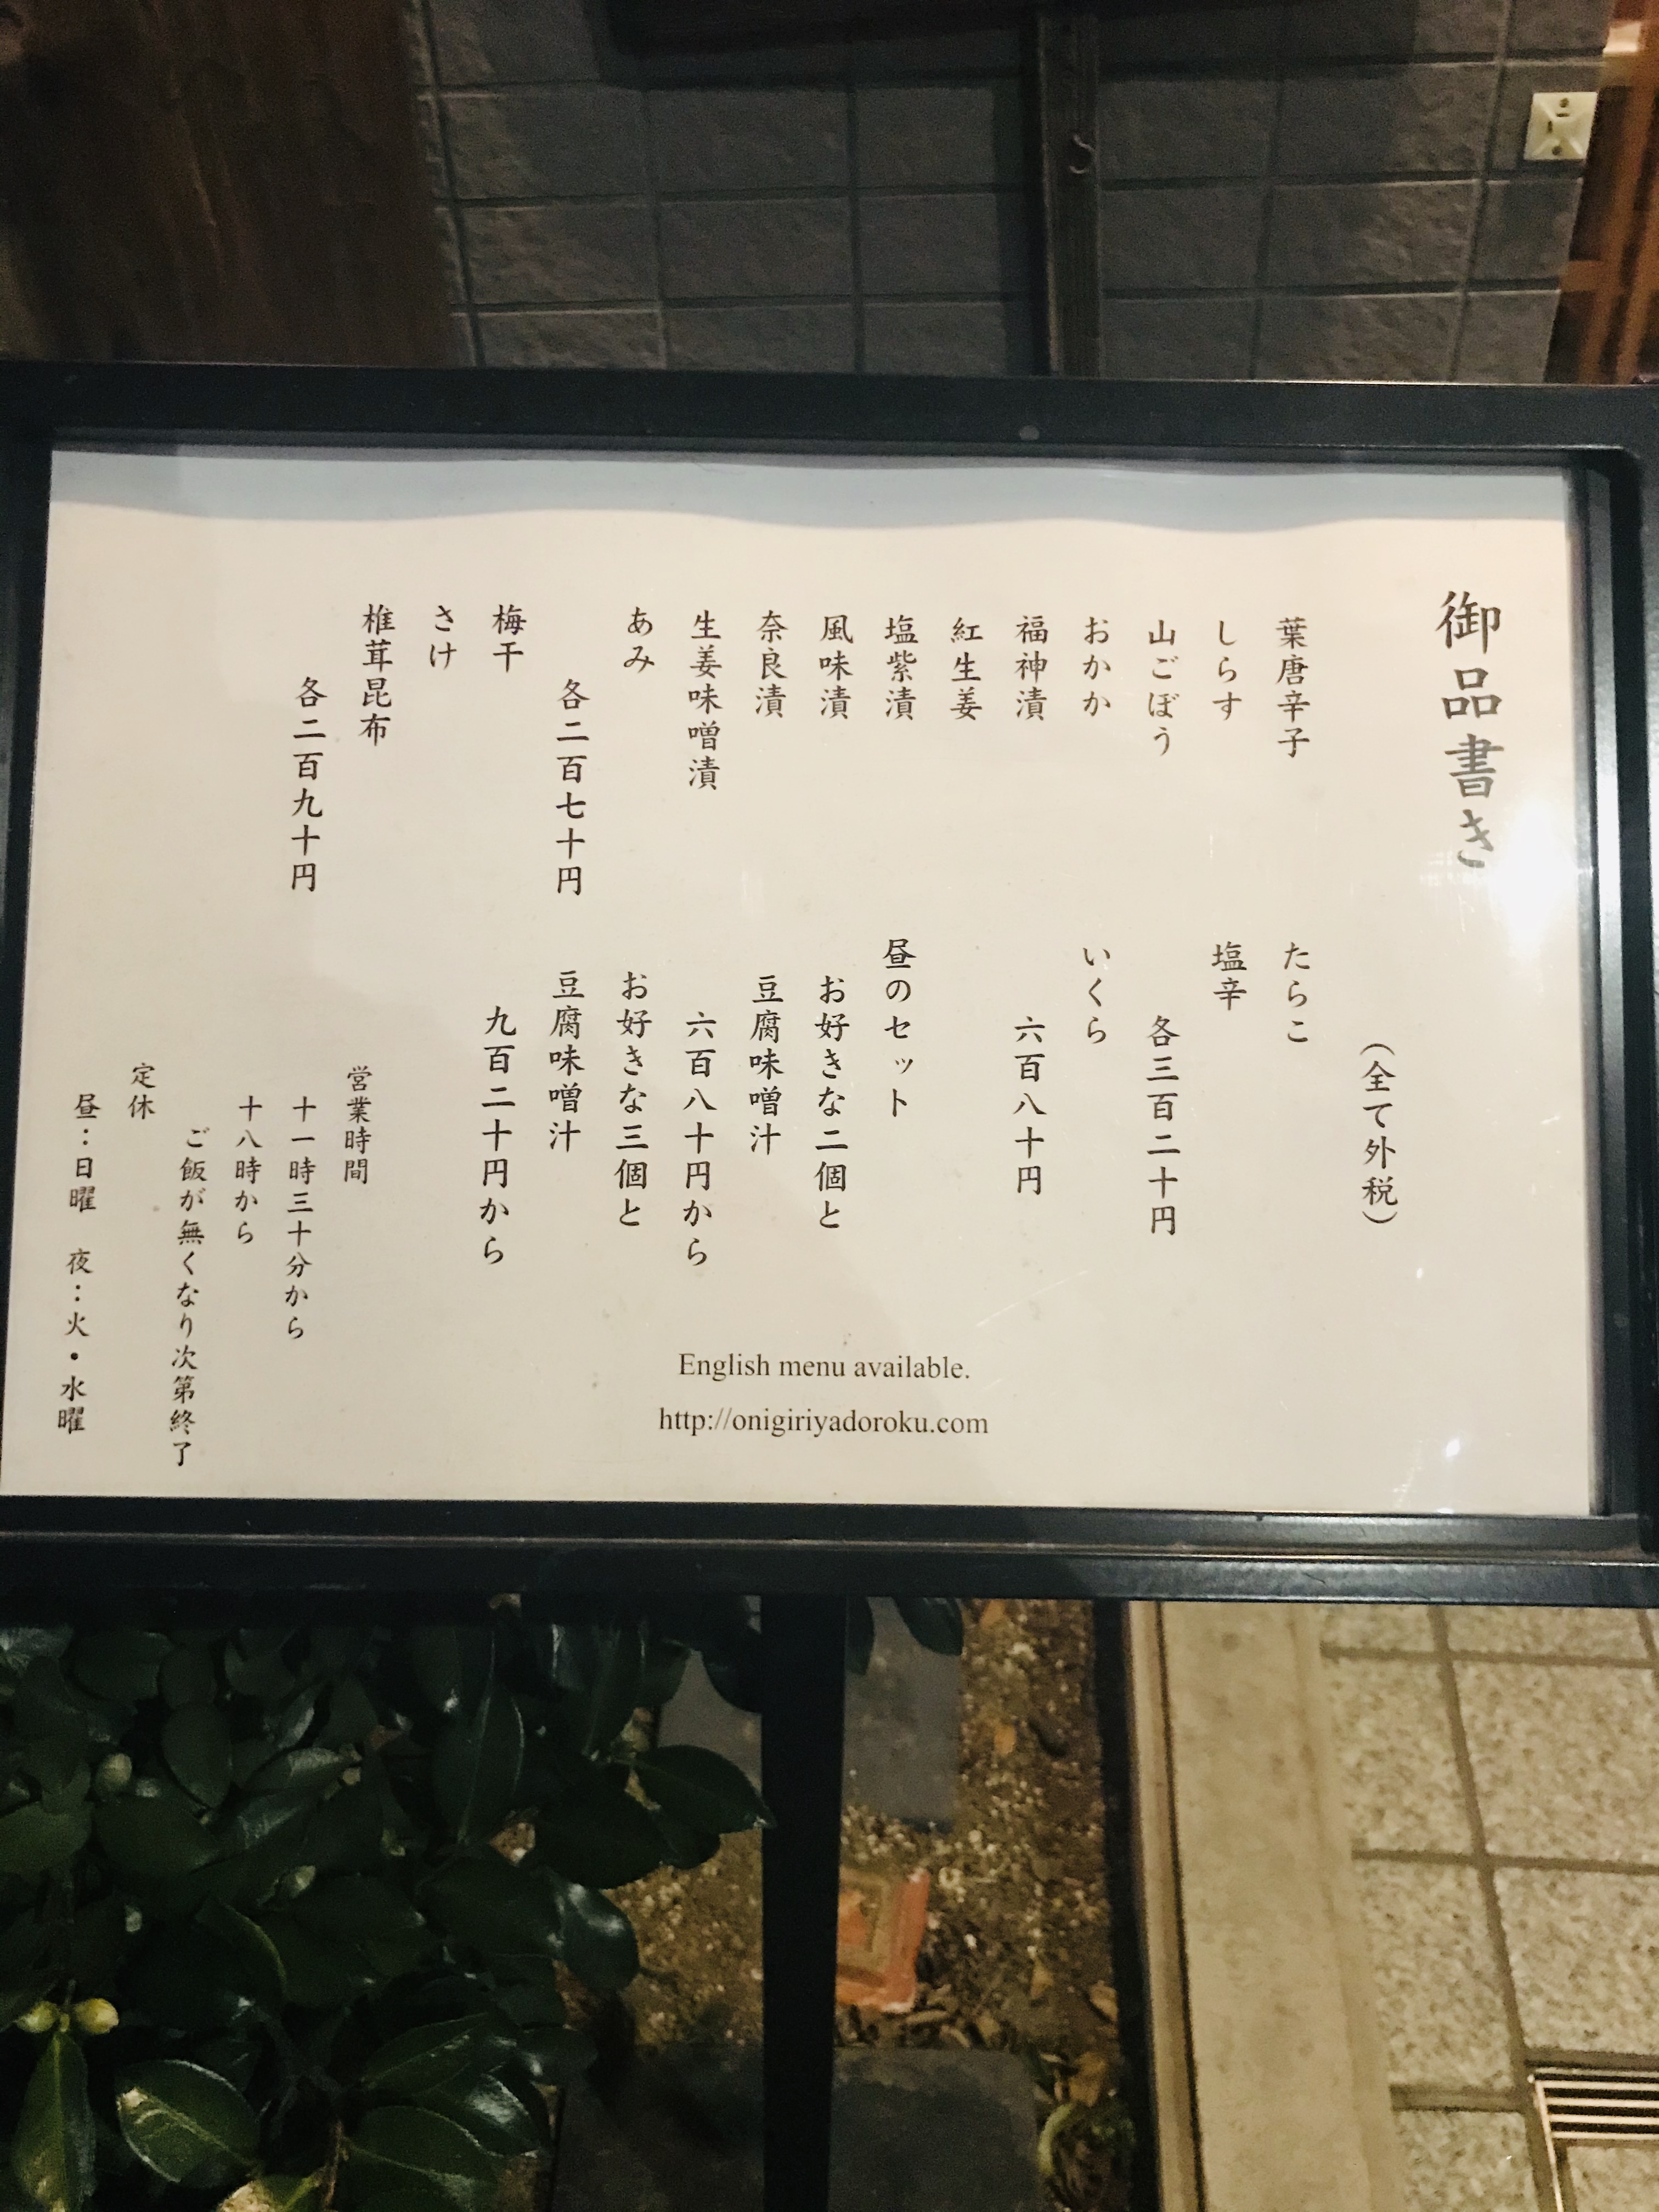 御品書き
(全て外税)
葉唐辛子
しらす
山ごぼう
おかか
福神漬
紅生姜
塩紫漬
風味漬
奈良漬
生姜味噌漬
あみ
各二百七十円
梅干
さけ
椎茸昆布
各二百九十円
たらこ
塩辛
各三百二十円
いくら
六百八十円
昼のセット
お好きな二個と
豆腐味噌汁
六百八十円から
お好きな三個と
豆腐味噌汁
九百二十円から
営業時間
十一時三十分から
十八時から
ご飯が無くなり次第終了
定休
昼:日曜 夜:火・水曜
English menu available.
http://onigiriyadoroku.com